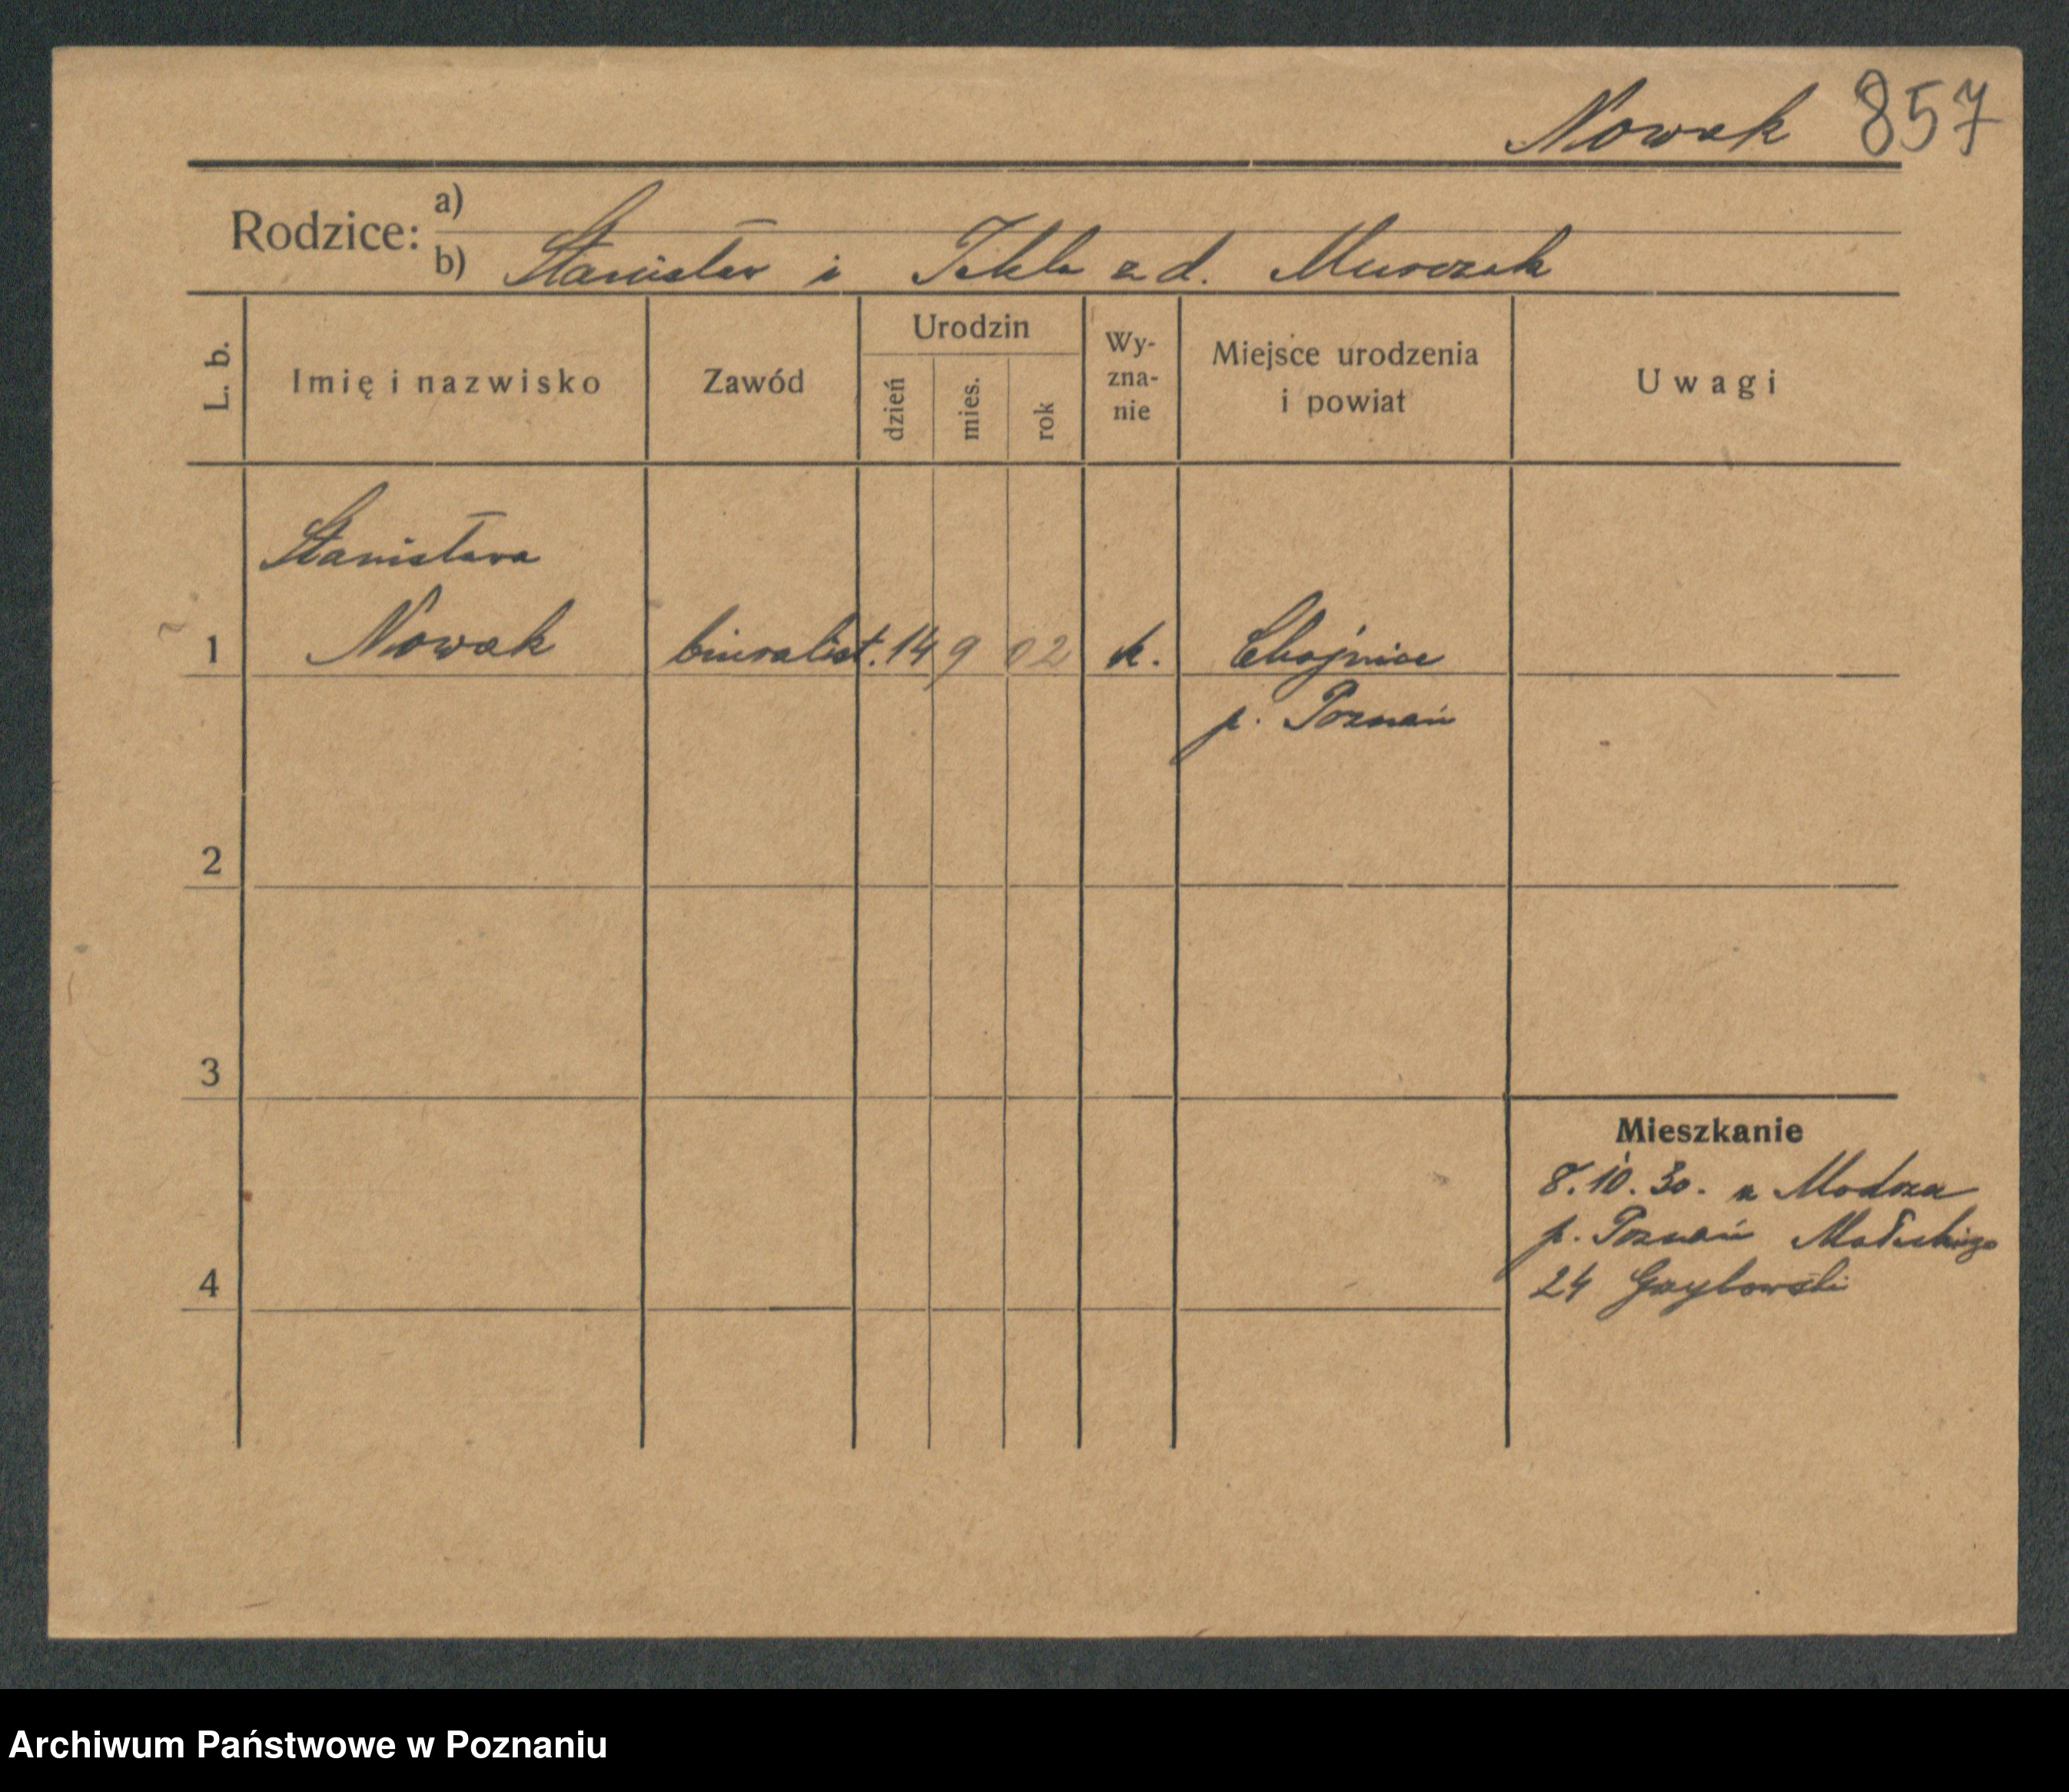 Nowak 857
Rodzice: a)
b) Stanisław i Tekla z d. Murczak
L. b.
Imię i nazwisko
Zawód
Urodzin
dzień
mies.
rok
Wy-
zna-
nie
Miejsce urodzenia
i powiat
Uwagi
Stanisława
1 Nowak biuralist. 14 9 02 k. Chojnice
p. Poznań
2
3
Mieszkanie
8.10.30. z
p. Poznań Małeckiego
4
24
Archiwum Państwowe w Poznaniu